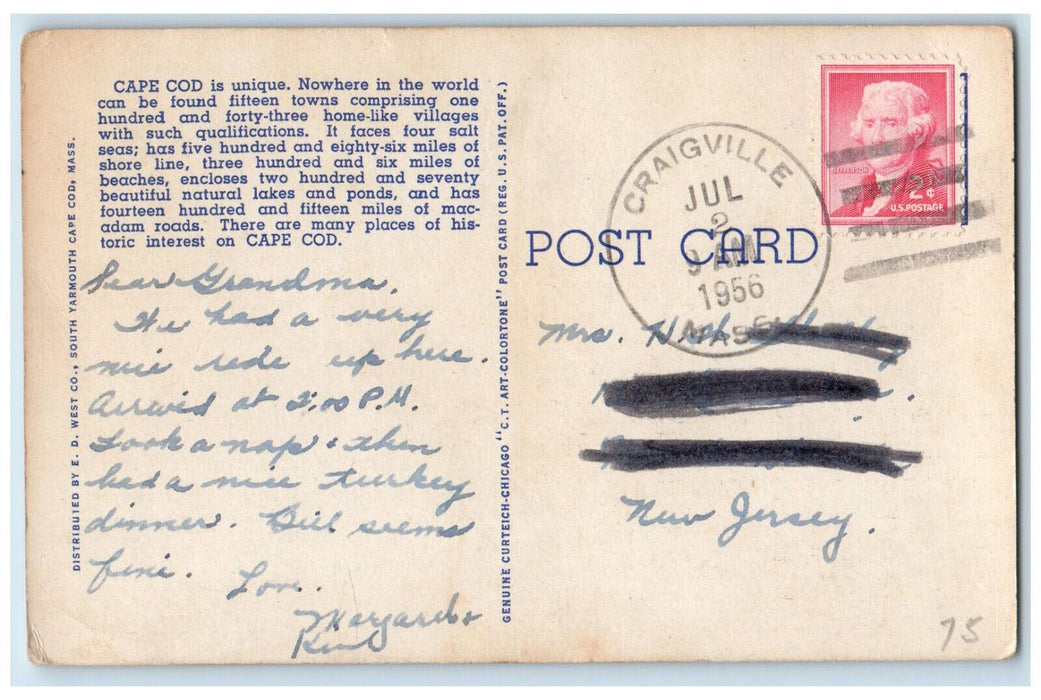 CAPE COD is unique. Nowhere in the world
can be found fifteen towns comprising one
hundred and forty-three home-like villages
with such qualifications. It faces four salt
seas; has five hundred and eighty-six miles of
shore line, three hundred and six miles of
beaches, encloses two hundred and seventy
beautiful natural lakes and ponds, and has
fourteen hundred and fifteen miles of mac-
adam roads. There are many places of his-
toric interest on CAPE COD.
Dear Grandma,
We had a very
nice ride up here.
Arrived at 2:00 P.M.
Took a nap & then
had a nice turkey
dinner. Bill seems
fine. Love.
Margaret &
DISTRIBUTED BY E. D. WEST CO., SOUTH YARMOUTH CAPE COD, MASS.
GENUINE CURTEICH-CHICAGO "C.T. ART-COLORTONE" POST CARD (REG. U.S. PAT. OFF.)
POST CARD
CRAIGVILLE
JUL
2
9 AM
1956
MASS.
JEFFERSON
2¢
U.S. POSTAGE
Mrs.
New Jersey.
75